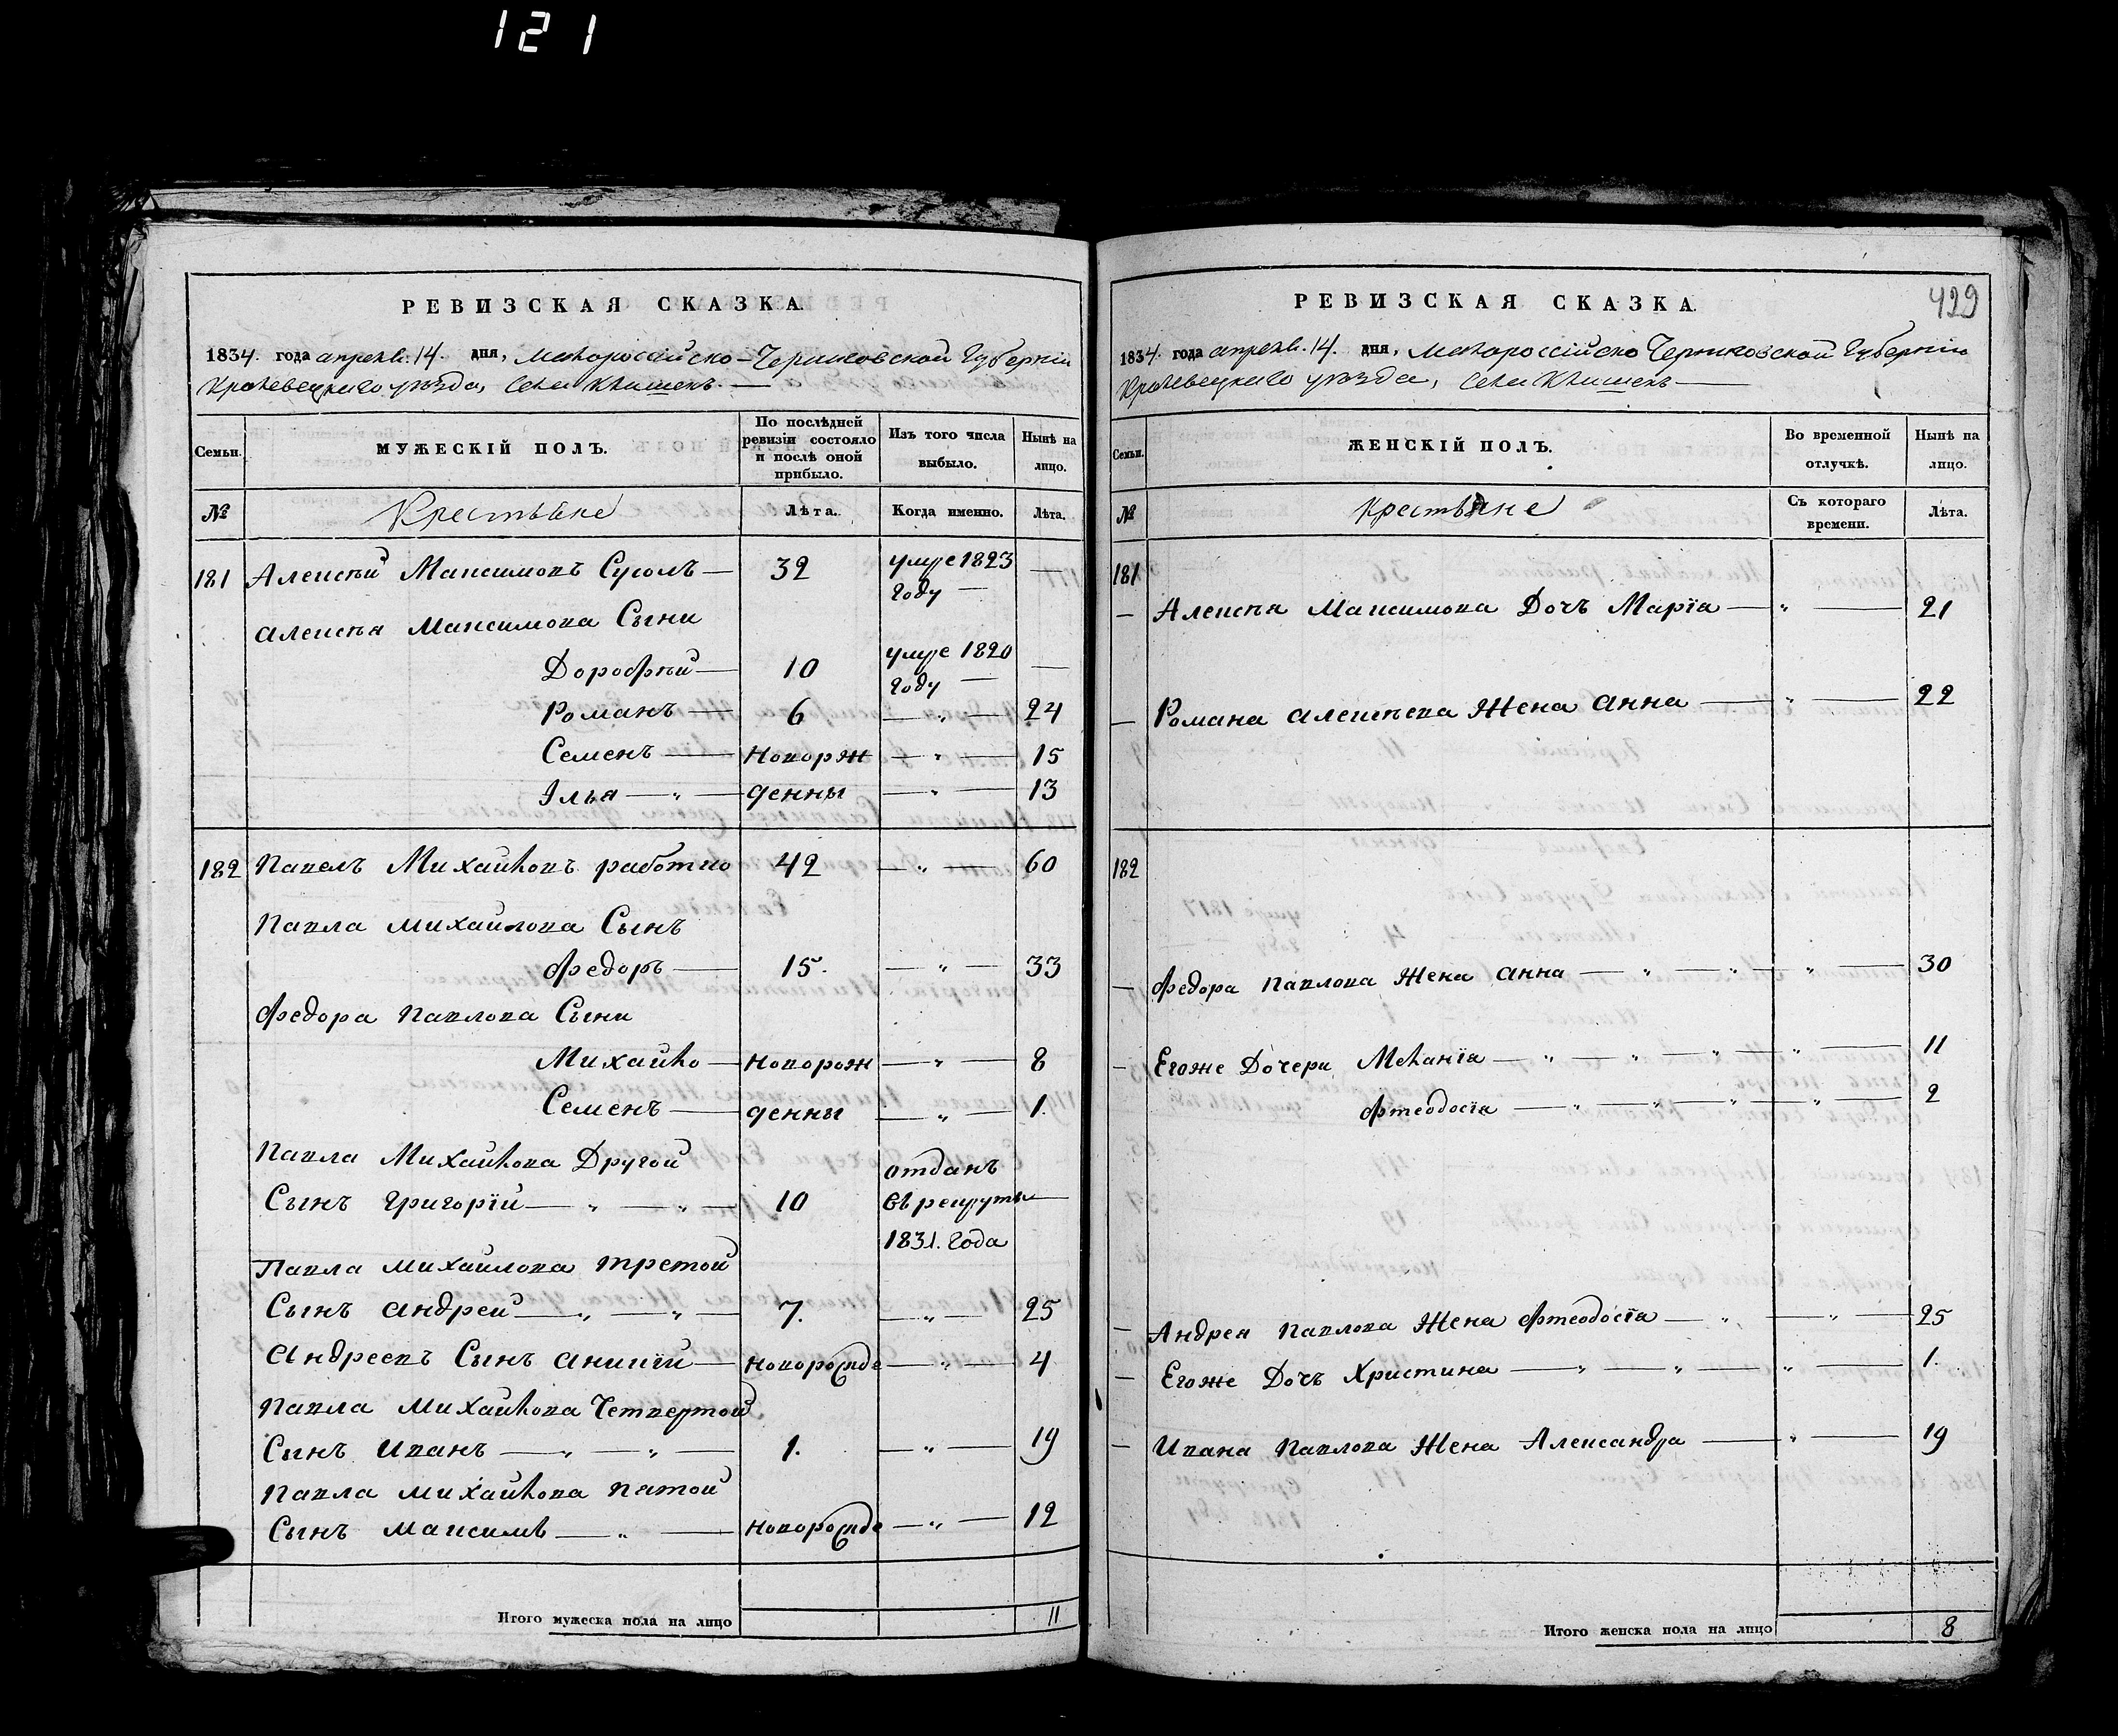 121
РЕВИЗСКАЯ СКАЗКА.
1834. года апреля. 14. дня, Малороссійско-Черниговской Губерніи
Кролевецкаго уезда, Села Клишекъ.
Семьи.
МУЖЕСКІЙ ПОЛЪ.
По послѣдней ревизіи состояло и послѣ оной прибыло.
Изъ того числа выбыло.
Нынѣ на лицо.
№
Крестьяне
Лѣта.
Когда именно.
Лѣта.
181 Алексѣй Максимовъ — 32 умре 1823 году —
Алексѣя Максимова Сыни
Дорофѣй — 10 умре 1820 году —
Романъ — 6 — „ — 24
Семенъ — Новорж — „ — 15
Ілья — „ — денны — „ — 13
182 Павелъ Михайловъ 42 — „ — 60
Павла Михайлова Сынъ
Федоръ — 15. — „ — 33
Федора Павлова Сыни
Михайло — новорож — „ — 8
Семенъ — денны — „ — 1.
Павла Михайлова Другой
Сынъ Григорій — „ — „ — 10 отданъ в рекруты — 1831. года
Павла Михайлова третой
Сынъ Андрей — „ — „ — 7. — „ — 25
Андреевъ Сынъ — новорожде — „ — 4
Павла Михайлова Четвертой
Сынъ Иванъ — „ — „ — 1. — „ — 19
Павла Михайлова пятой
Сынъ Максимъ — „ — новорожде — „ — 12
Итого мужеска пола на лицо 11
429
РЕВИЗСКАЯ СКАЗКА.
1834. года апреля. 14. дня, Малороссійско Черниговской Губерніи
Кролевецкаго уезда, Села Клишекъ —
Семьи.
ЖЕНСКІЙ ПОЛЪ.
Во временной отлучкѣ.
Нынѣ на лицо.
№
Крестьяне
Съ котораго времени.
Лѣта.
181
— Алексѣя Максимова Дочъ Марїа — „ — 21
— Романа Алексѣева Жена Анна — „ — 22
182
— Федора Павлова Жена Анна — „ — „ — „ — 30
— Егоже Дочери Меланїа — „ — „ — „ — „ — 11
Фтеодосїа — „ — „ — „ — „ — 2
— Андрея Павлова Жена Фтеодосїа — „ — „ — 25
— Егоже Дочъ Христина — „ — „ — „ — 1.
— Ивана Павлова Жена Александра — „ — 19
Итого женска пола на лицо 8